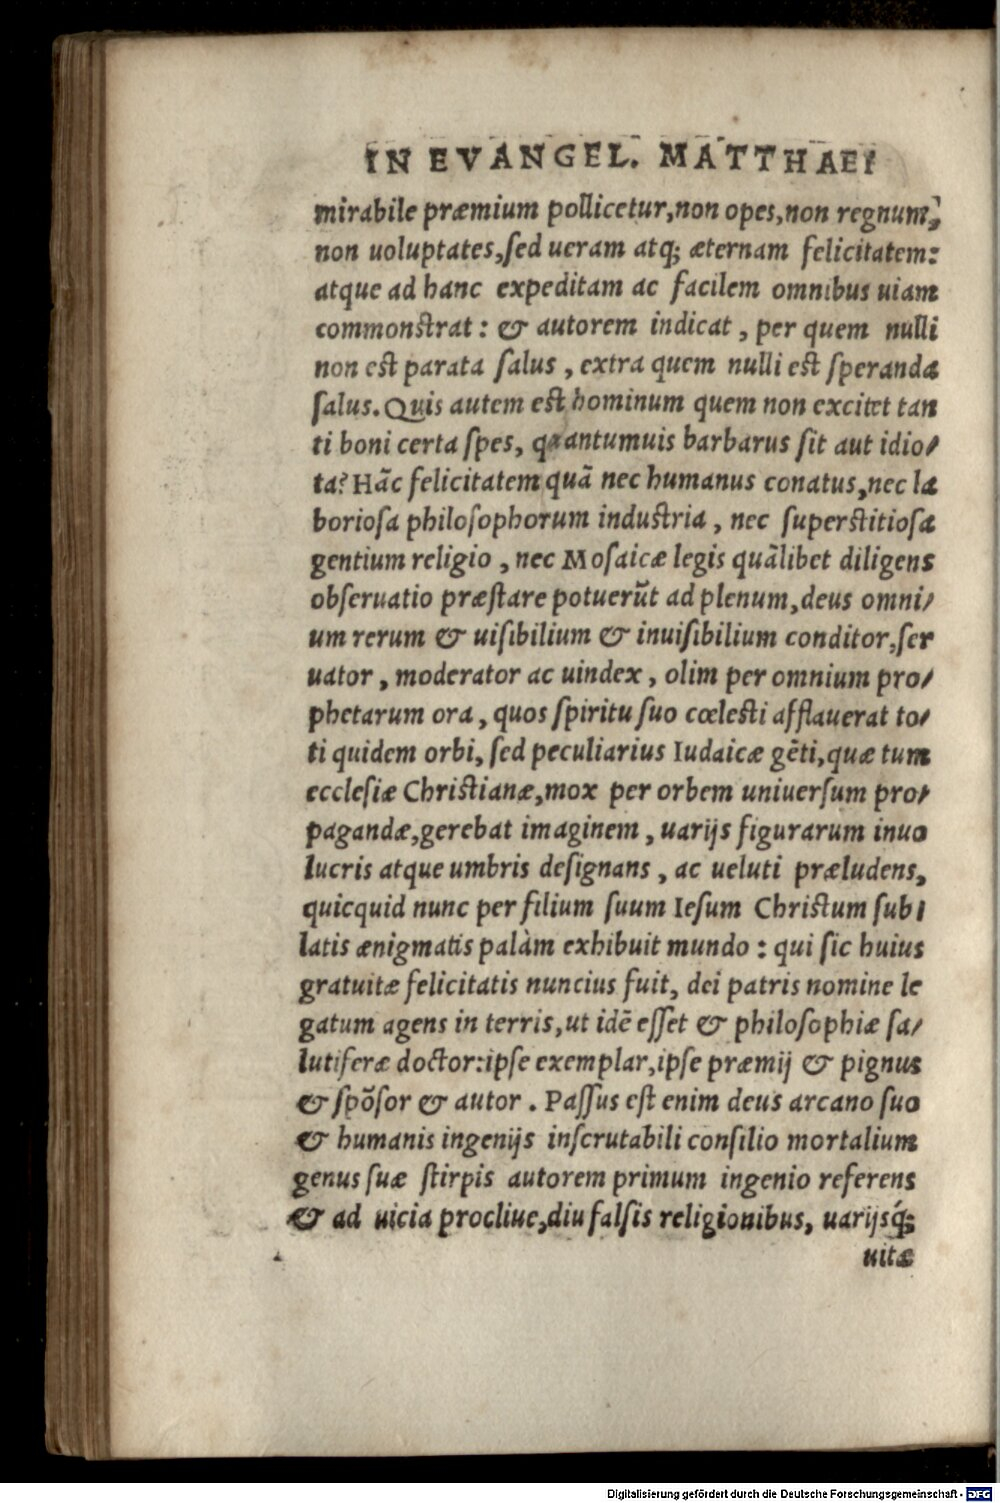 IN EVANGEL. MATTHAEI
mirabile præmium pollicetur, non opes, non regnum,
non uoluptates, ſed ueram atq; æternam felicitatem:
atque ad hanc expeditam ac facilem omnibus uiam
commonſtrat: & autorem indicat, per quem nulli
non eſt parata ſalus, extra quem nulli eſt ſperanda
ſalus. Quis autem eſt hominum quem non excitet tan
ti boni certa ſpes, quantumuis barbarus ſit aut idio/
ta? Hāc felicitatem quā nec humanus conatus, nec la
borioſa philoſophorum induſtria, nec ſuperſtitioſa
gentium religio, nec Moſaicæ legis quālibet diligens
obſeruatio præſtare potuerūt ad plenum, deus omni/
um rerum & uiſibilium & inuiſibilium conditor, ſer
uator, moderator ac uindex, olim per omnium pro/
phetarum ora, quos ſpiritu ſuo cœleſti afflauerat to/
ti quidem orbi, ſed peculiarius Iudaicæ gēti, quæ tum
eccleſiæ Chriſtianæ, mox per orbem uniuerſum pro/
pagandæ, gerebat imaginem, uarijs figurarum inuo
lucris atque umbris deſignans, ac ueluti præludens,
quicquid nunc per filium ſuum Ieſum Chriſtum ſub/
latis ænigmatis palàm exhibuit mundo: qui ſic huius
gratuitæ felicitatis nuncius fuit, dei patris nomine le
gatum agens in terris, ut idē eſſet & philoſophiæ ſa/
lutiferæ doctor: ipſe exemplar, ipſe præmij & pignus
& ſpōſor & autor. Paſſus eſt enim deus arcano ſuo
& humanis ingenijs inſcrutabili conſilio mortalium
genus ſuæ ſtirpis autorem primum ingenio referens
& ad uicia procliue, diu falſis religionibus, uarijsq́;
uitæ
Digitalisierung gefördert durch die Deutsche Forschungsgemeinschaft - DFG